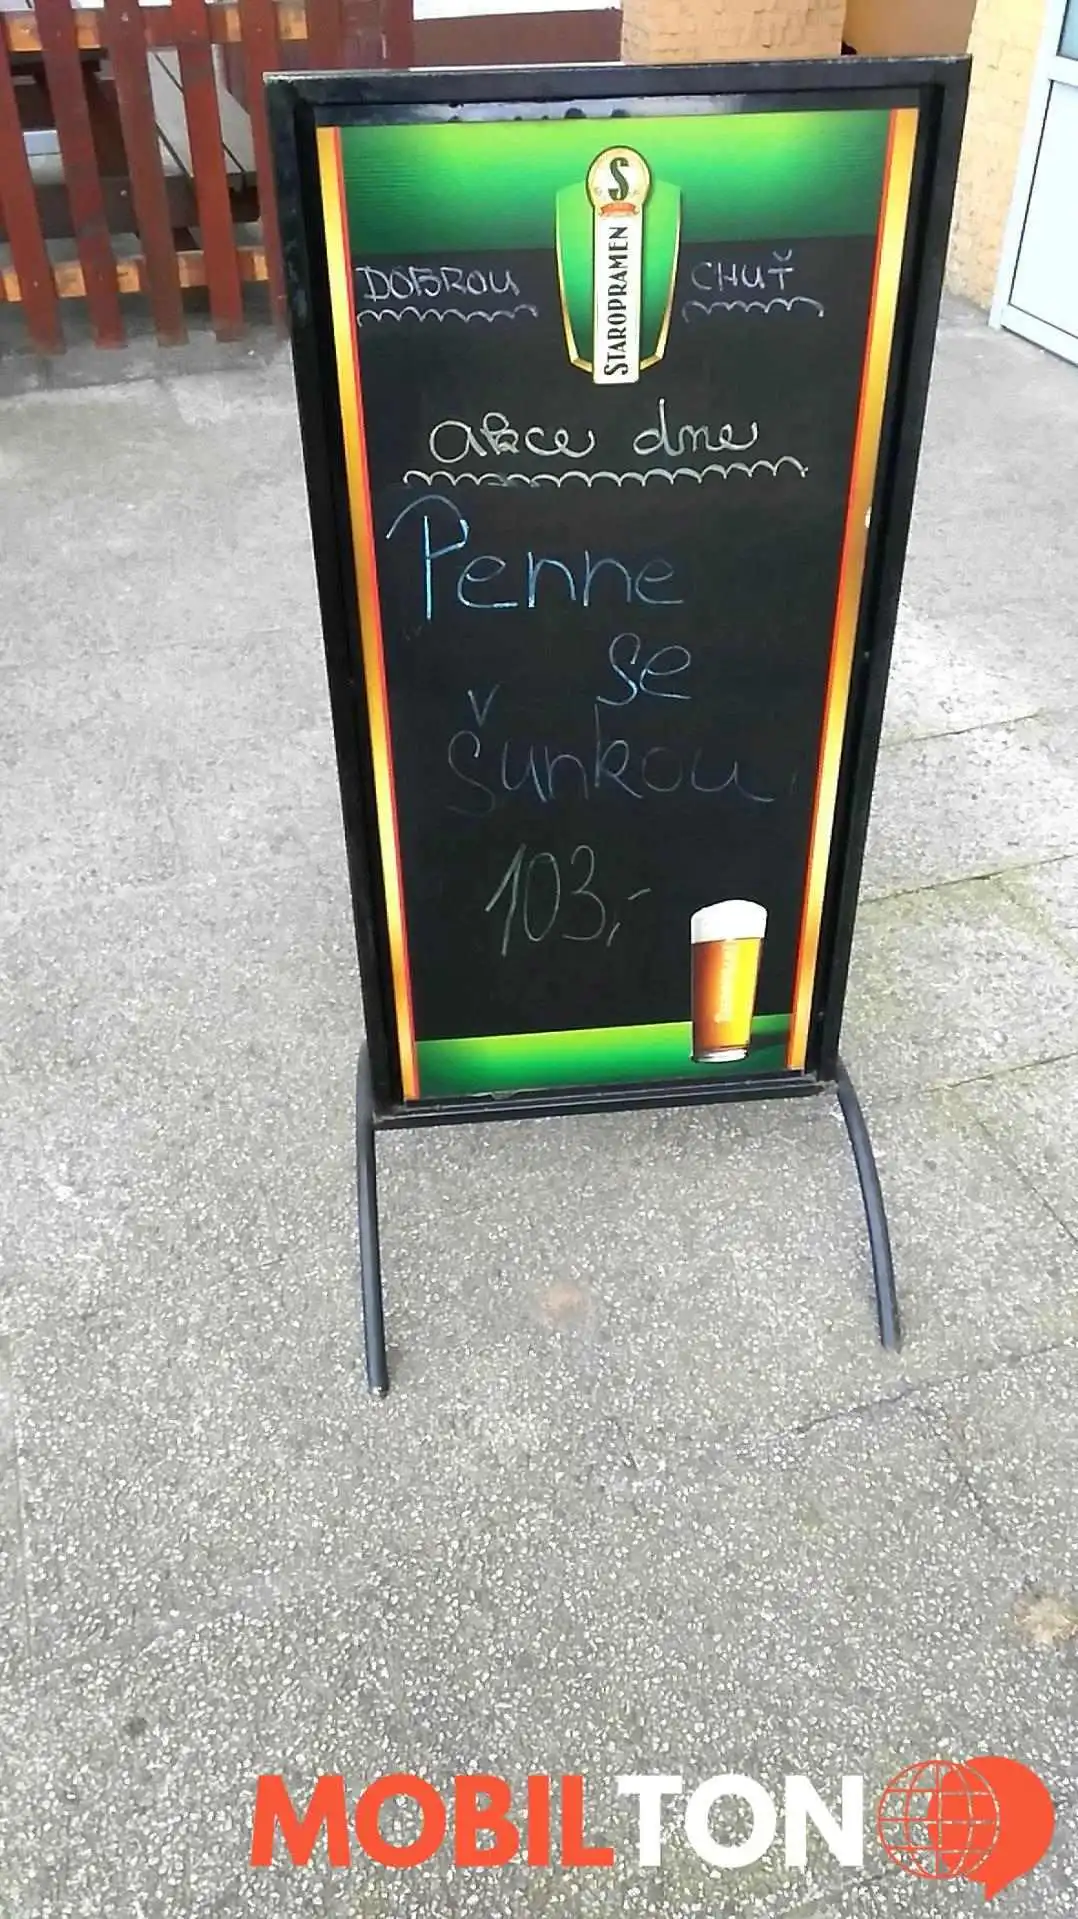 S
STAROPRAMEN
DOBROU CHUŤ
akce dne
Penne
se
šunkou
103,-
MOBILTON